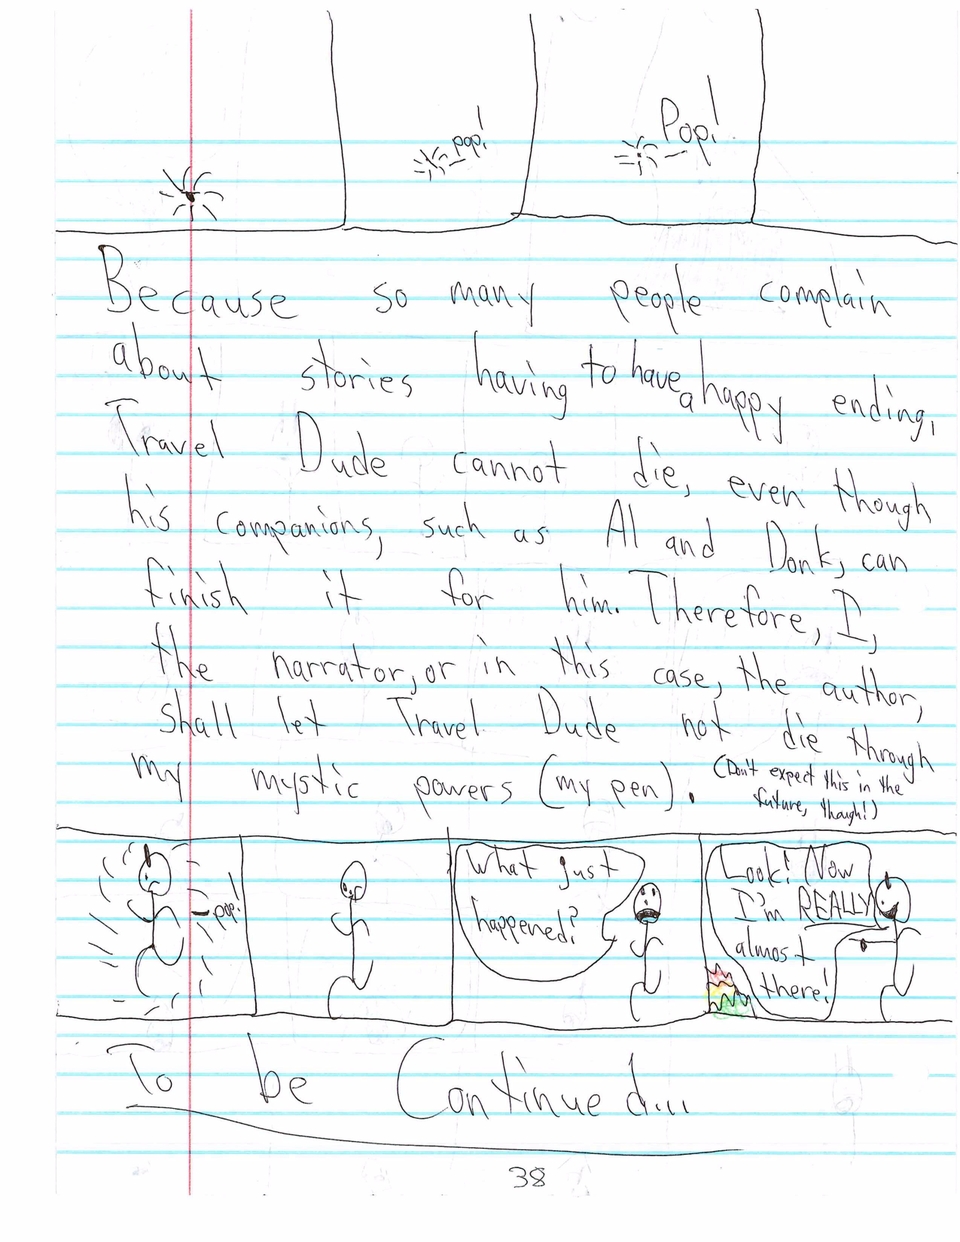 pop!
Pop!
Because so many people complain
about stories having to have a happy ending,
Travel Dude cannot die, even though
his companions, such as Al and Donk, can
finish it for him. Therefore, I,
the narrator, or in this case, the author,
shall let Travel Dude not die through
my mystic powers (my pen).
(Don't expect this in the
future, though!)
pop!
What just
happened?
Look! Now
I'm REALLY
almost
there!
To be Continued...
38